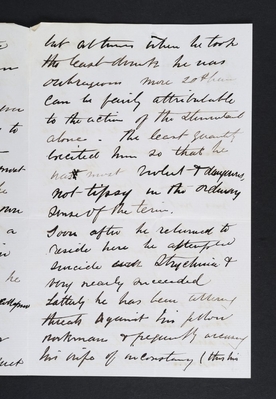 but at times when he took
the least drink he was
outrageous more so than
can be fairly attributable
to the action of the stimulant
alone. The least quantity
excited him so that he
was most violent & dangerous,
not tipsy in the ordinary
sense of the term.
Soon after he returned to
reside here he attempted
suicide with Strychnia &
very nearly succeeded
Latterly he has been uttering
threats against his fellow
workman & frequently accusing
his wife of inconstancy (this his